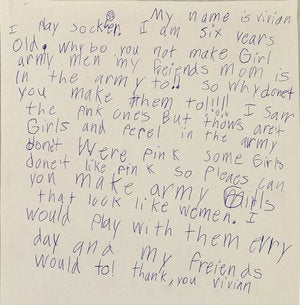 My name is vivian
I Play socker. I am six years
Old. why bo you not make Girl
army men my freiends mom is
in the army to!! so why donet
you make them tol!!!! I saw
the pink ones But thows aren't
Girls and pepel in the army
donet Were pink some Girls
done't like pink so Pleaes can
you make army Girls
that look like wemen. I
would play with them evry
day and my freiends
would to! thank, you vivian